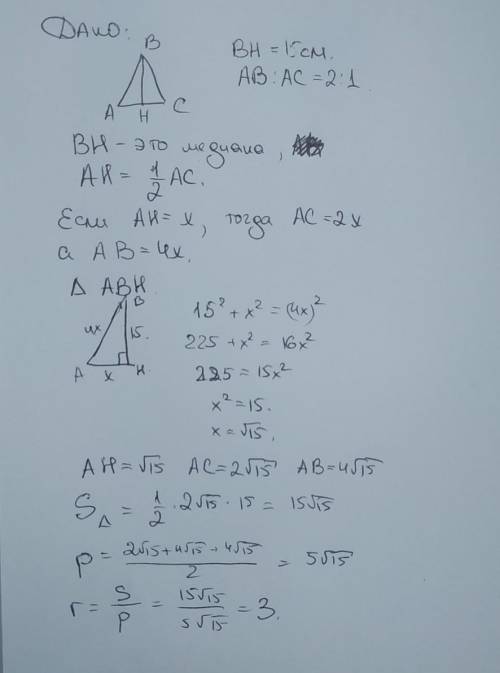 Дано:
B
A H C
BH = 15 см.
AB : AC = 2 : 1
BH – это медиана,
AH = 1/2 AC.
Если AH = x, тогда AC = 2x
а AB = 4x.
Δ ABH.
B
4x 15.
A x H
15² + x² = (4x)²
225 + x² = 16x²
225 = 15x²
x² = 15.
x = √15.
AH = √15 AC = 2√15 AB = 4√15
S_Δ = 1/2 · 2√15 · 15 = 15√15
p = (2√15 + 4√15 + 4√15)/2 = 5√15
r = S/p = 15√15/5√15 = 3.